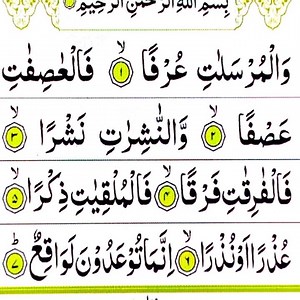 بِسْمِ اللهِ الرَّحْمٰنِ الرَّحِيْمِ
وَالْمُرْسَلٰتِ عُرْفًا ۙ﴿۱﴾ فَالْعٰصِفٰتِ
عَصْفًا ۙ﴿۲﴾ وَّالنّٰشِرٰتِ نَشْرًا ۙ﴿۳﴾
فَالْفٰرِقٰتِ فَرْقًا ۙ﴿۴﴾ فَالْمُلْقِيٰتِ ذِكْرًا ۙ﴿۵﴾
عُذْرًا اَوْ نُذْرًا ۙ﴿۶﴾ اِنَّمَا تُوْعَدُوْنَ لَوَاقِعٌ ؕ﴿۷﴾